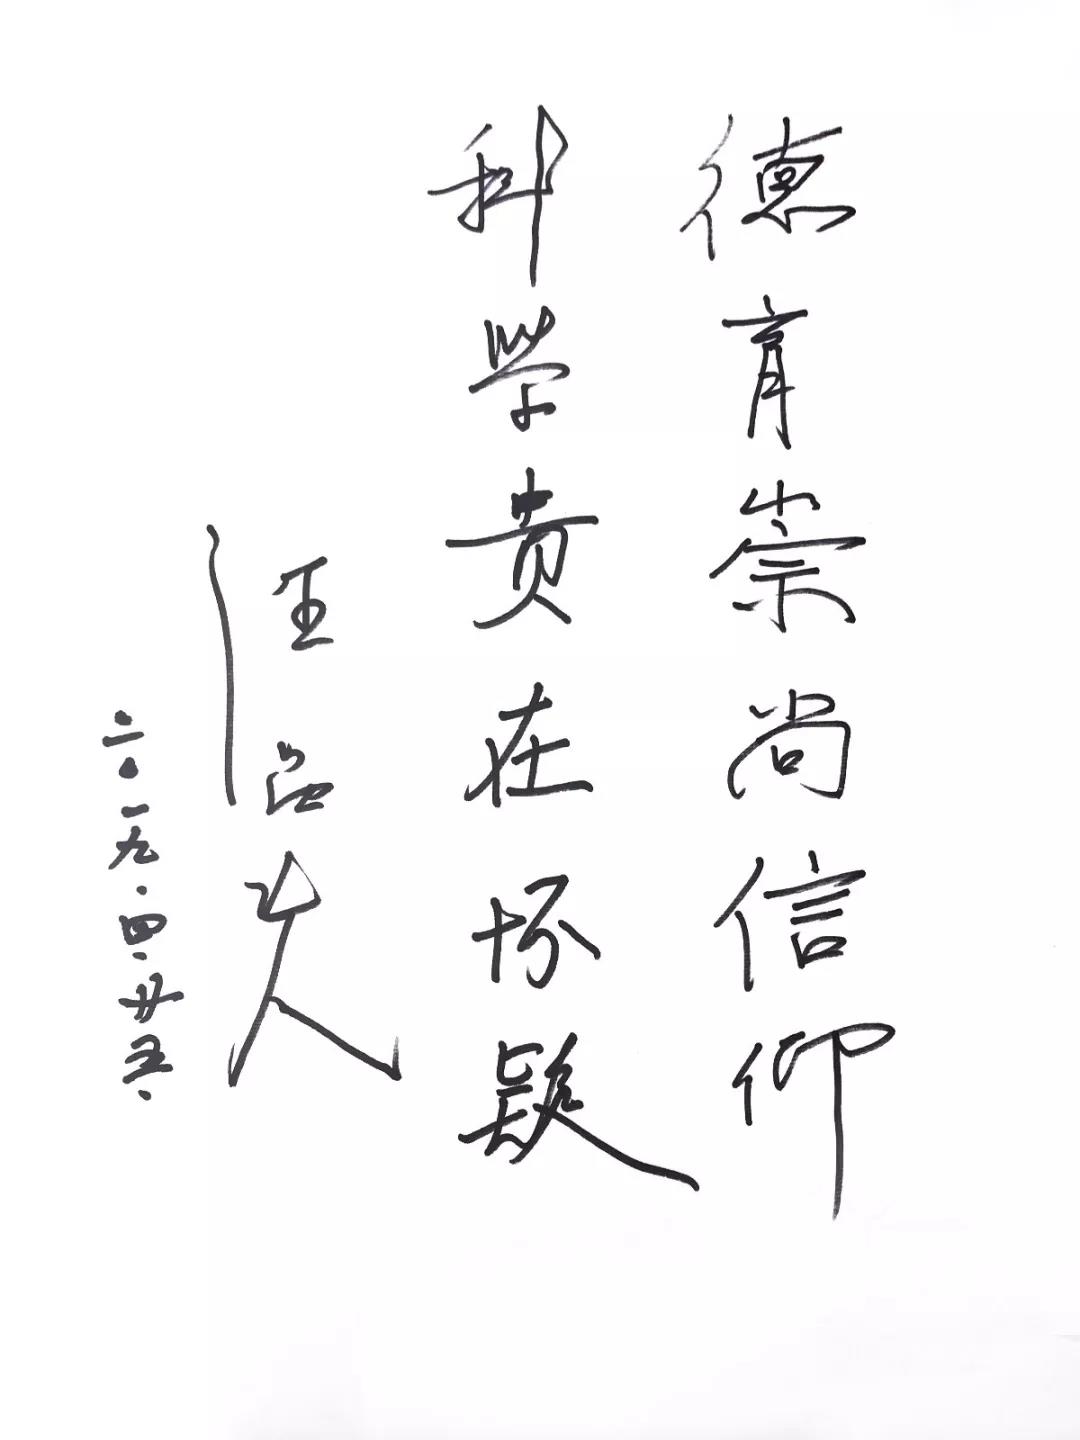 德育崇尚信仰
科学贵在怀疑
汪品先
二〇一九.四.廿五.